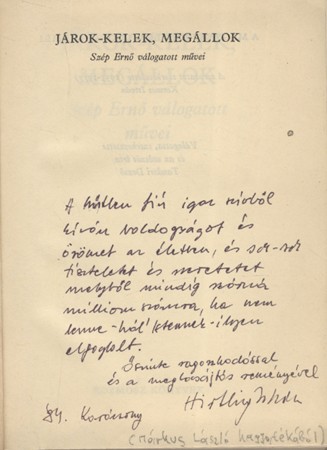 JÁROK-KELEK, MEGÁLLOK
Szép Ernő válogatott művei
A hűtlen fiú igaz szívből
kíván boldogságot és
örömet az életben, és sok-sok
tiszteletet és szeretetet
melytől mindig száz
millió számra, ha nem
lenne - hál' Istennek - ilyen
elfoglalt.
Őszinte ragaszkodással
és a megbocsájtás reményével
'84. Karácsony
(Márkus László hagyatékából)